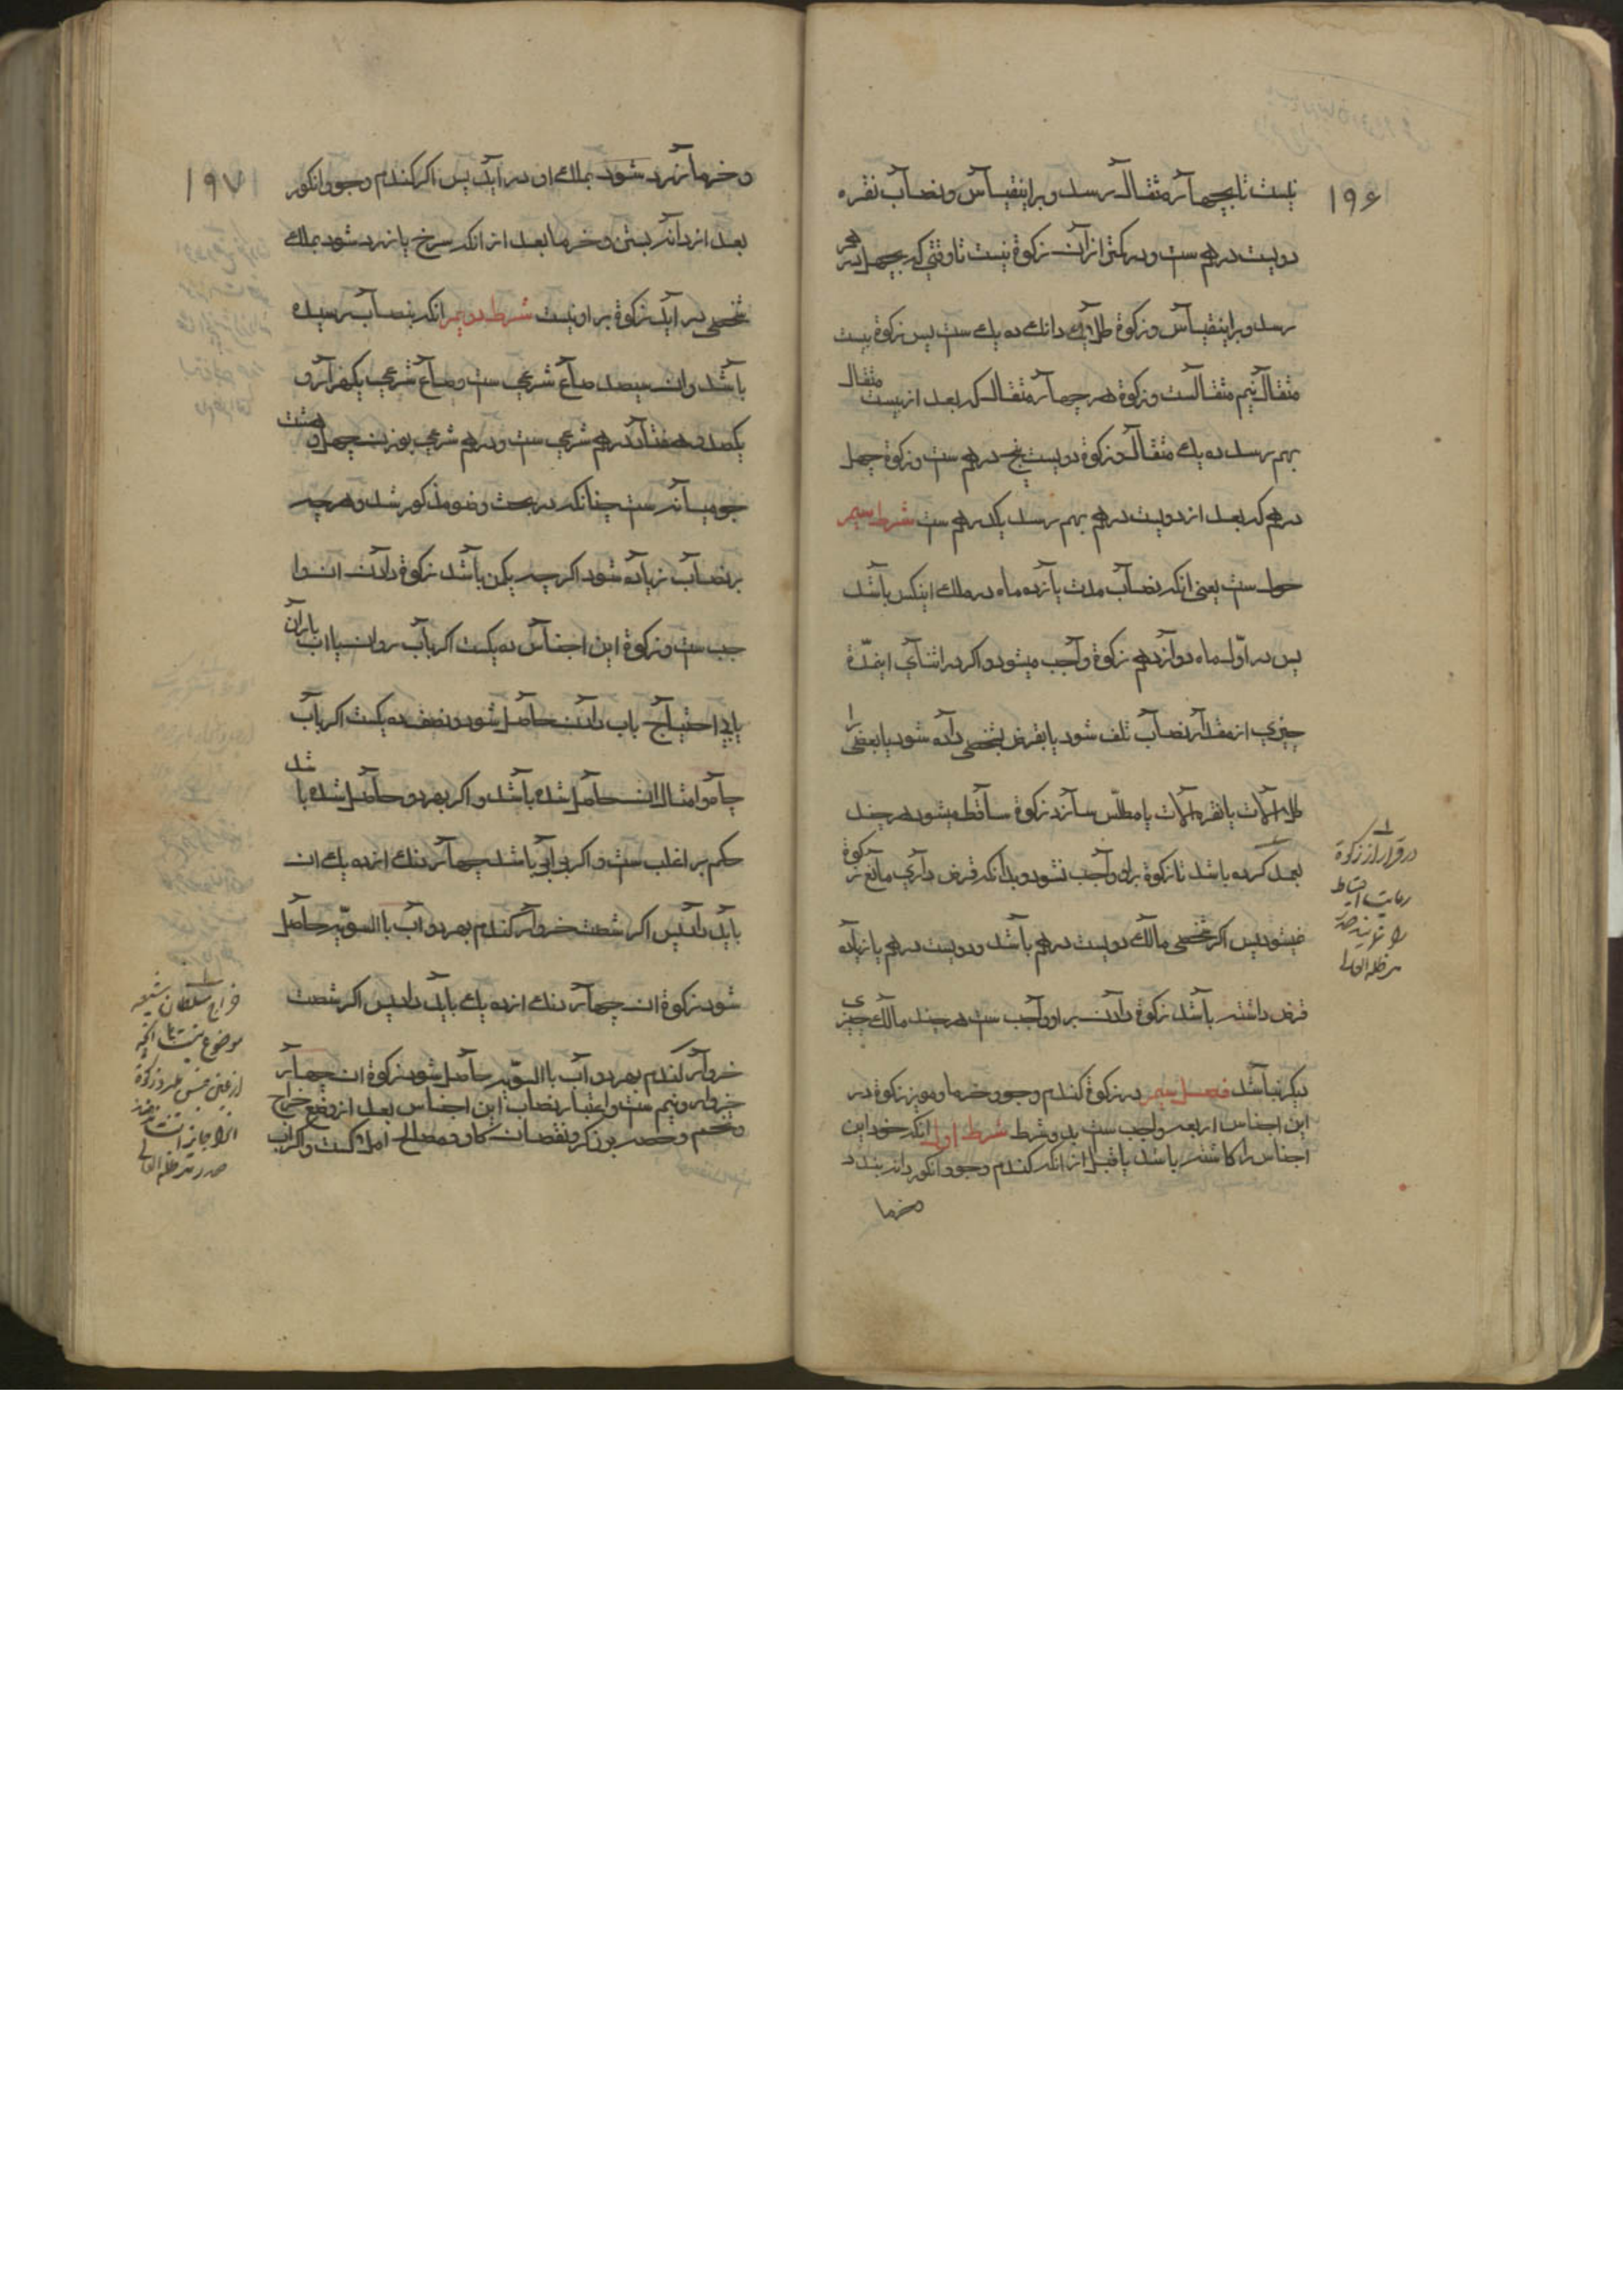 ۱۹۶
نیست تا بچهار مثقال رسد و براینقیاس و نصاب نقره
دویست درهم ست و در کمتر از آن زکوة نیست تا وقتی که بچهل درهم
رسد و براینقیاس و زکوة طلا یک دانک ده یک ست پس زکوة بیست
مثقال نیم مثقالست و زکوة هر چهار مثقال که بعد از بیست مثقال
بهم رسد ده یک مثقال و زکوة دویست پنج درهم ست و زکوة چهل
درهم که بعد از دویست درهم بهم رسد یکدرهم ست شرط سیم
حول ست یعنی انکه نصاب مدت یازده ماه در ملک اینکس باشد
پس در اوّل ماه دوازدهم زکوة واجب میشود و اکر در اثنای اینمدّة
چیزی از مقدار نصاب تلف شود یا بقرض بشخصی داده شود یا بعضی را
طلا آلات یا نقره آلات یا مطلّس سازد زکوة ساقط میشود هر چند
بعمد کرده باشد تا زکوة براو واجب نشود و بدانکه قرض داری مانع زکوة
نمیشود پس اکر شخصی مالک دویست درهم باشد و دویست درهم یا زیاده
قرض داشته باشد زکوة دادن بر او واجب ست هر چند مالک چیزی
دیکر نباشد فصل سیم در زکوة کندم و جو و خرما و مویز زکوة در
این اجناس اربعه واجب ست بدو شرط شرط اول انکه خود این
اجناس را کاشته باشد یا قبل از انکه کندم و جو و انکور دانه بندد
و خرما
در قرار از زکوة
رعایت احتیاط
را
مد ظله العالی
۱۹۷
و خرما زرد شود بملک او در اید پس اکر کندم و جو و انکور
بعد از دانه بستن و خرما بعد از انکه سرخ یا زرد شود بملک
شخصی در اید زکوة بر او نیست شرط دویم انکه بنصاب رسیده
باشد و ان سیصد صاع شرعی ست و صاع شرعی یکهزار و
یکصد و هفتاد درهم شرعی ست و درهم شرعی بوزن چهل و هشت
جو میانه ست چنانکه در بحث وضو مذکور شد و هر چه
بر نصاب زیاده شود اکر چه یکمن باشد زکوة دادن ان وا
جب ست و زکوة این اجناس ده یکست اکر باب روان یا اب باران
یا بی احتیاج باب دادن حاصل شود و نصف ده یکست اکر باب
چاه و امثال ان حاصل شده باشد و اکر بهر دو حاصل شده باشد
حکم بر اغلب ست و اکر برابر باشد چهار دنک از ده یک ان
باید داد پس اکر شصت خروار کندم بهر دو اب بالسویّه حاصل
شود زکوة ان چهار دنک از ده یک باید داد پس اکر شصت
خروار کندم بهر دو اب بالسویّه حاصل شود زکوة ان چهار
خروار و نیم ست و اعتبار نصاب این اجناس بعد از وضع خراج
و تخم و حصه برزکر و نقصان کاو و مصالح املاکست و اکر اب
خراج سلطان شیعه
موضوع نیست انچه
از عین جنس
انرا جایز است
مد ظله العالی